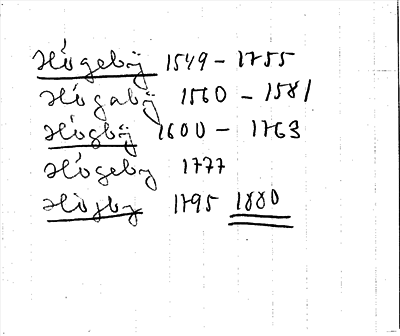 Hógebÿ 1549 – 1755
Hógabÿ 1560 – 1581
Hógbÿ 1600 – 1763
Hógeby 1777
Hógby 1795 1880